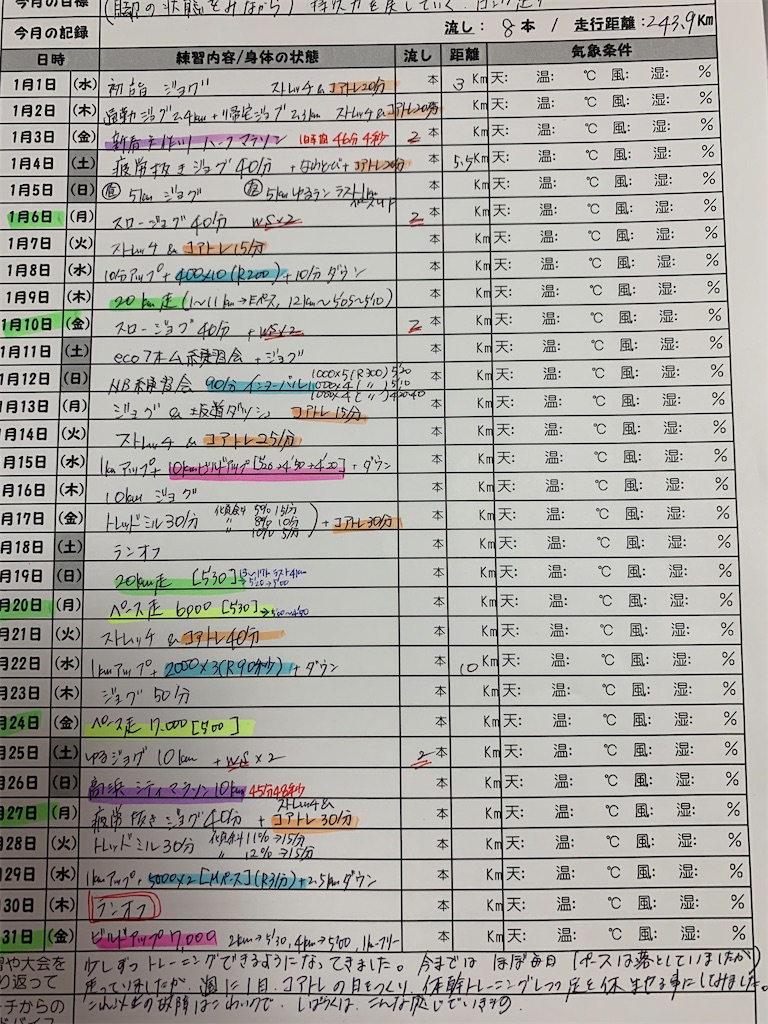 今月の目標 (脚の状態をみながら) 持久力を戻していく
今月の記録 流し: 8 本 / 走行距離:243.9Km
日時 練習内容/身体の状態 流し 距離 気象条件
1月1日 (水) 初詣 ジョグ ストレッチ&コアトレ20分 本 3 Km 天: 温: ℃ 風: 湿: %
1月2日 (木) 通勤ジョグ2.4km+帰宅ジョグ2.3km ストレッチ&コアトレ20分 本 Km 天: 温: ℃ 風: 湿: %
1月3日 (金) 新春 ハーフマラソン 1時間46分4秒 2 本 Km 天: 温: ℃ 風: 湿: %
1月4日 (土) 疲労抜きジョグ40分 +なわとび+コアトレ20分 本 5.5 Km 天: 温: ℃ 風: 湿: %
1月5日 (日) 5kmジョグ 5kmゆるラン ラスト1km 本 Km 天: 温: ℃ 風: 湿: %
1月6日 (月) スロージョグ40分 WS×2 2 本 Km 天: 温: ℃ 風: 湿: %
1月7日 (火) ストレッチ&コアトレ15分 本 Km 天: 温: ℃ 風: 湿: %
1月8日 (水) 10分アップ+400×10(R200)+10分ダウン 本 Km 天: 温: ℃ 風: 湿: %
1月9日 (木) 20km走(1~11km→Eペース, 12km~5'05~5'10) 本 Km 天: 温: ℃ 風: 湿: %
1月10日 (金) スロージョグ40分 +WS×2 2 本 Km 天: 温: ℃ 風: 湿: %
1月11日 (土) ecoアホム練習会+ジョグ 本 Km 天: 温: ℃ 風: 湿: %
1月12日 (日) NB練習会 90分インターバル 1000×5(R300)5'20 1000×4(〃)5'10 1000×4(〃)4'20-40 本 Km 天: 温: ℃ 風: 湿: %
1月13日 (月) ジョグ&坂道ダッシュ コアトレ15分 本 Km 天: 温: ℃ 風: 湿: %
1月14日 (火) ストレッチ&コアトレ25分 本 Km 天: 温: ℃ 風: 湿: %
1月15日 (水) 1kmアップ+10kmビルドアップ[5'20→4'50→4'20]+ダウン 本 Km 天: 温: ℃ 風: 湿: %
月16日 (木) 10km ジョグ 本 Km 天: 温: ℃ 風: 湿: %
月17日 (金) トレッドミル30分 傾斜 5% 15分 〃 8% 10分 〃 10% 5分 +コアトレ30分 本 Km 天: 温: ℃ 風: 湿: %
月18日 (土) ランオフ 本 Km 天: 温: ℃ 風: 湿: %
月19日 (日) 20km走 [5'30] ラスト4km →5'20→5'00 本 Km 天: 温: ℃ 風: 湿: %
月20日 (月) ペース走 6000 [5'30] →5'00~4'50 本 Km 天: 温: ℃ 風: 湿: %
月21日 (火) ストレッチ&コアトレ40分 本 Km 天: 温: ℃ 風: 湿: %
月22日 (水) 1kmアップ+2000×3(R90秒)+ダウン 本 10 Km 天: 温: ℃ 風: 湿: %
月23日 (木) ジョグ50分 本 Km 天: 温: ℃ 風: 湿: %
月24日 (金) ペース走 7.000 [5'00] 本 Km 天: 温: ℃ 風: 湿: %
月25日 (土) ゆるジョグ10km +WS×2 2 本 Km 天: 温: ℃ 風: 湿: %
月26日 (日) 高浜シティマラソン10km 45分48秒 本 Km 天: 温: ℃ 風: 湿: %
月27日 (月) 疲労抜きジョグ40分 + ストレッチ& コアトレ30分 本 Km 天: 温: ℃ 風: 湿: %
月28日 (火) トレッドミル30分 傾斜11%→15分 〃 12%→15分 本 Km 天: 温: ℃ 風: 湿: %
月29日 (水) 1kmアップ+5000×2[Mペース](R3分)+2.5kmダウン 本 Km 天: 温: ℃ 風: 湿: %
月30日 (木) ランオフ 本 Km 天: 温: ℃ 風: 湿: %
31日 (金) ビルドアップ7,000 2km→5'30, 4km→5'00, 1km→フリー 本 Km 天: 温: ℃ 風: 湿: %
習や大会を 少しずつトレーニングできるようになってきました。今までは ほぼ毎日 (ペースは落としていましたが)
り返って 走っていましたが、週に1日、コアトレの日をつくり、体幹トレーニングしつつ足を休ませる事にしてみました。
ーチからの これ以上の故障はこわいので、しばらくは、こんな感じでいきます。
ドバイス